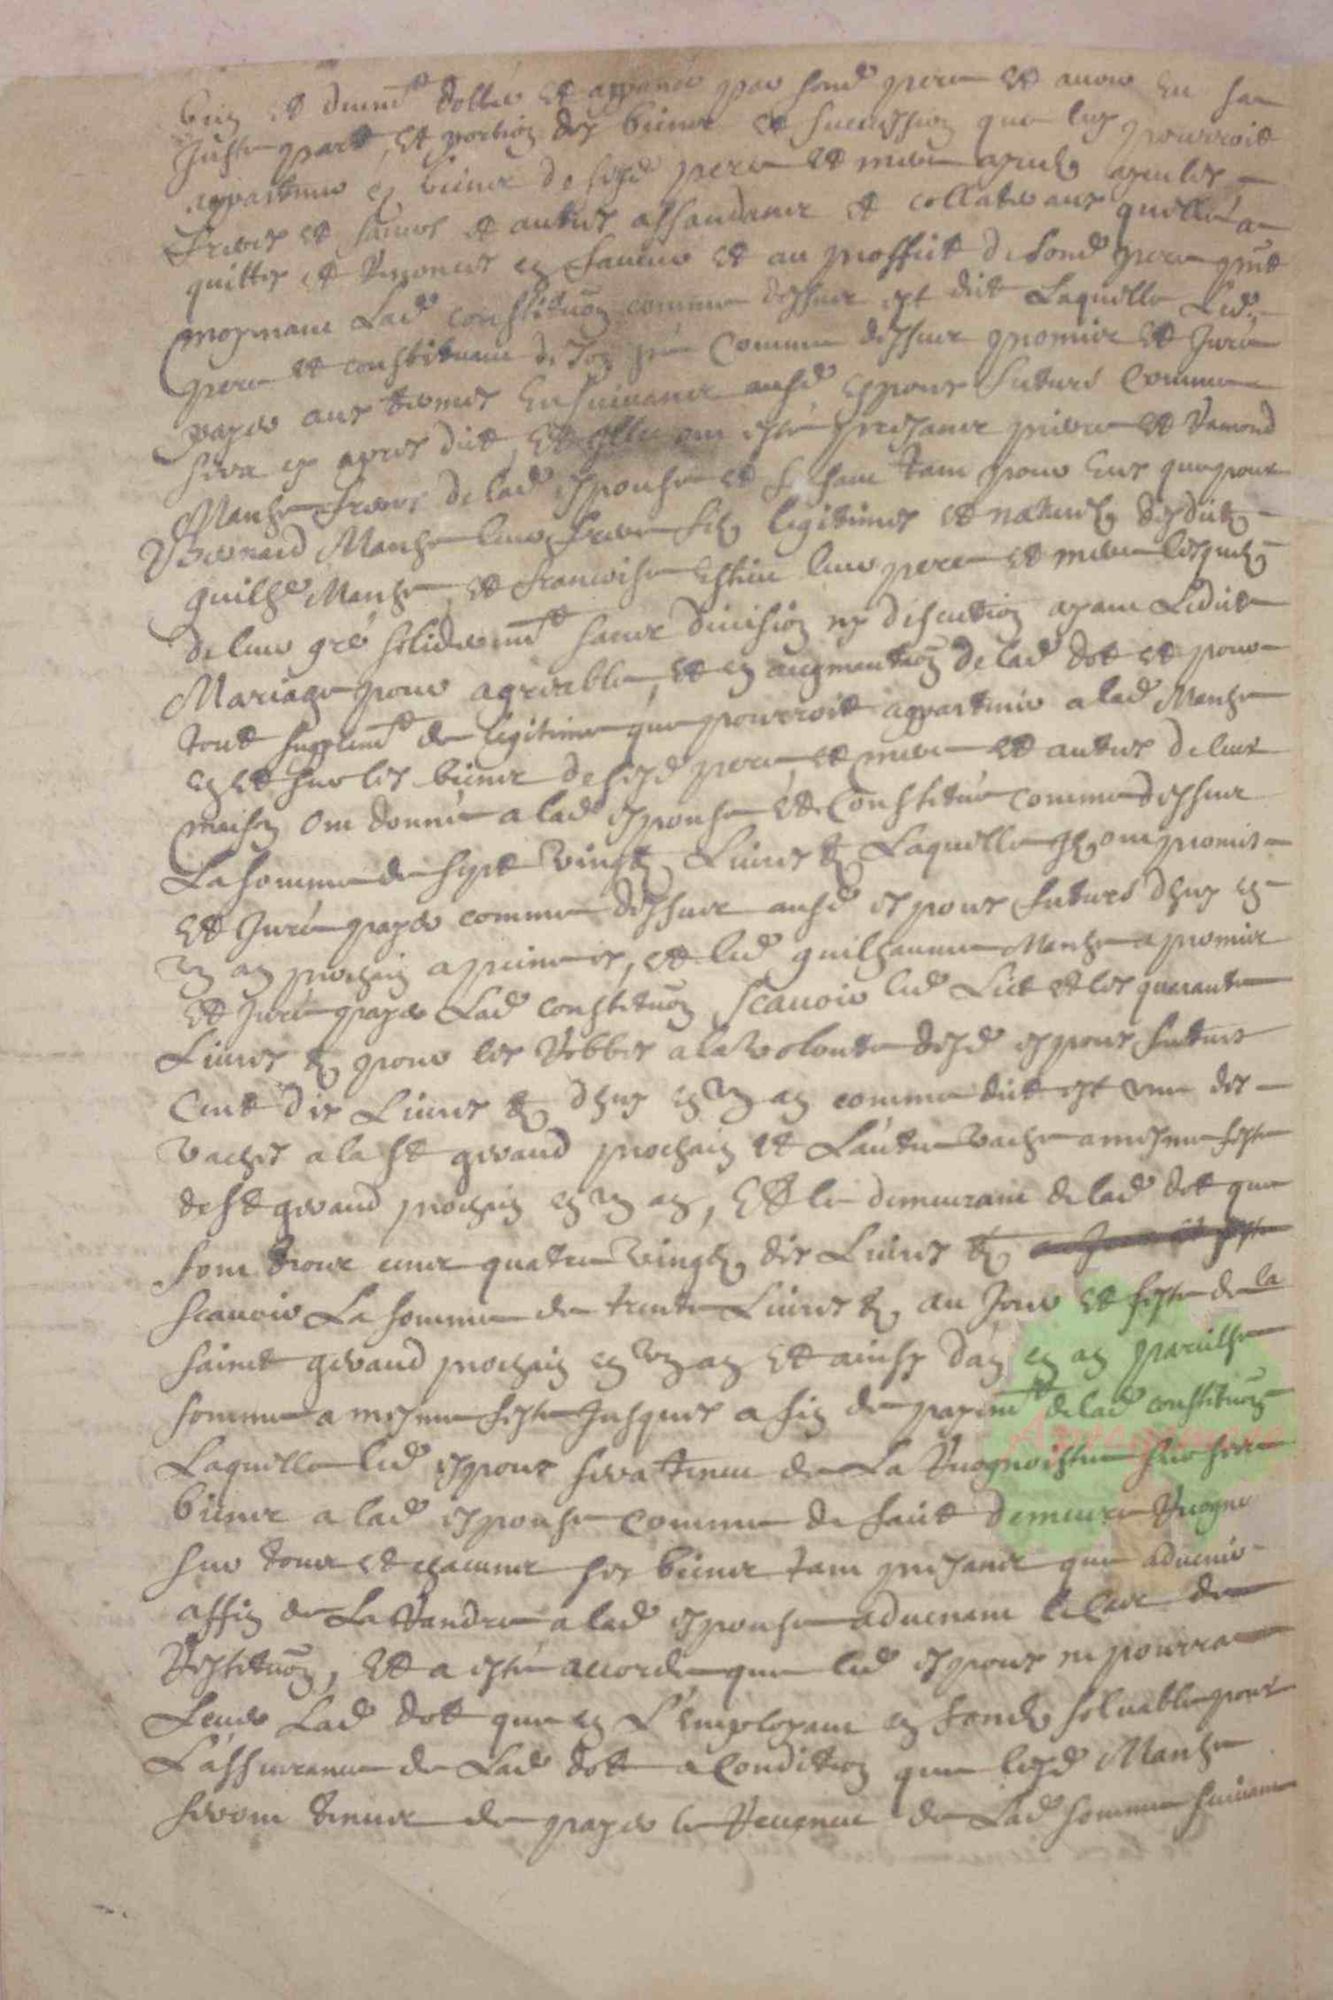 bien et deuem^t dottée et appanée par sond^t pere et avoir eu sa
juste part, et portion des biens et succession que luy pourroit
appartenir ez biens de sesd^ pere et mere ayeuls ayeules
freres et sœurs et autres assandans et collateraus quelle a
quittés et renoncés en faveur et au proffit de sond^ pere
moyenant lad^ constituõn comme dessus est dit laquelle led^
pere et constituant de son gré comme dessus promis et juré
payer aus termes ensuivans ausd^ espous futurs comme
sera cy apres dit, Et illec ont esté presans pierre et Ramond
Manhe freres de lad^ espouse et faisant tant pour eus que pour
Bernard Manhe leur frere fils legitimes et naturels desdits
guilhe^ Manhe, et francoise leur pere et mere lesquels
de leur gré solideremt sans division ny discution ayant ledit
Mariage pour agreable, et en augmentaõn de lad^ dot et pour
tout supplemt de legitime que pourroit appartenir a lad^ Manhe
en et sur les biens de sesd^ pere, et mere et autres de leur
maison ont donné a lad^ espouse et constitué comme dessus
La somme de sept vingts Livres tz Laquelle ils ont promis
Et juré payer comme dessus ausd^ espous futurs dhuy en
un an prochain a peine etc, et led^ guilhaume Manhe a promis
Et juré payer Lad^ constituõn scavoir led^ Lict et les quarante
Livres tz pour les Robbes a la volonte desd^ espous futurs
Cent dis Livres tz dhuy en un an comme dit est une des
vaches a la St geraud prochain et Lautre vache a mesme feste
de St geraud prochain en un an, Et le demeurant de lad^ dot que
sont trois cens quatre vingts dis Livres tz
scavoir La somme de trente Livres tz au jour et feste de la
sainct geraud prochain en un an et ainsy dan en an pareilhe
somme a mesme feste jusques a fin de payemt de lad^ constituõn
Laquelle led^ espous sera tenu de La Recognoistre sur ses
biens a lad^ espouse comme de fait demeure Recogneu
sur tous et chacuns ses biens tant presans que advenir
affin de La Randre a lad^ espouse advenant le Cas de
Restituõn, Et a esté accordé que led^ espous ne pourra
Lever Lad^ dot que en L'employant en fonds solvable pour
L'assurance de Lad^ dot a condition que lesd^ Manhe
seront tenus de payer le Revenu de Lad^ somme suivant